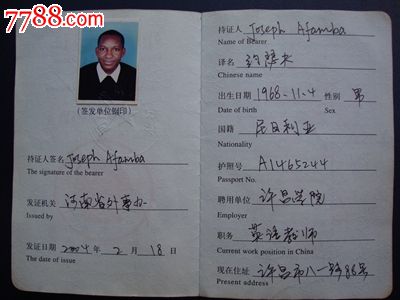 7788.com
(签发单位钢印)
持证人签名 Joseph Afamba
The signature of the bearer
发证机关 河南省外事办
Issued by
发证日期 2004 年 2 月 18 日
The date of issue
持证人 Joseph Afamba
Name of Bearer
译名 约瑟夫
Chinese name
出生日期 1968-11-4 性别 男
Date of birth Sex
国籍 尼日利亚
Nationality
护照号 A1465244
Passport No.
聘用单位 许昌学院
Employer
职务 英语教师
Current work position in China
现在住址 许昌市八一路88号
Present address